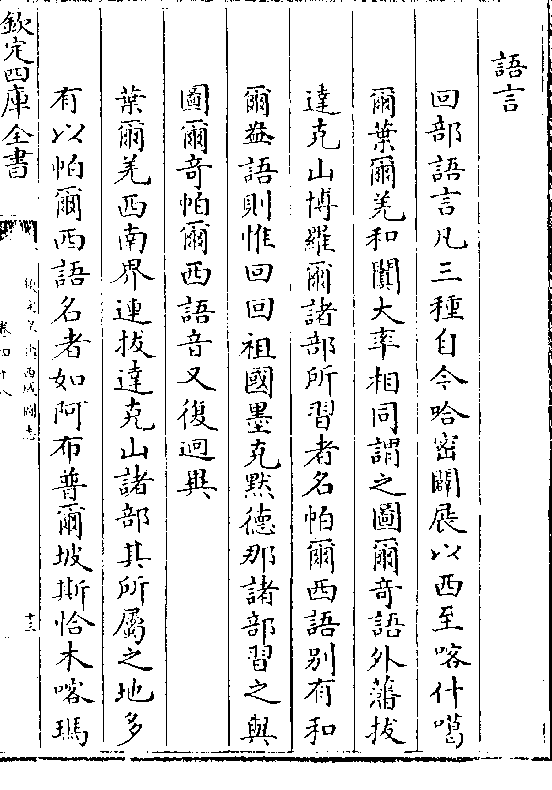 語言
回部語言凡三種自今哈密闢展以西至喀什噶
爾葉爾羌和闐大率相同謂之圖爾奇語外藩拔
達克山博羅爾諸部所習者名帕爾西語別有和
爾兹語則惟回回祖國墨克黙德那諸部習之與
圖爾奇帕爾西語音又復迥異
葉爾羌西南界連拔達克山諸部其所屬之地多
有以帕爾西語名者如阿布普爾坡斯恰木喀瑪
欽定四庫全書
欽定皇輿西域圖志
卷四十八
十三